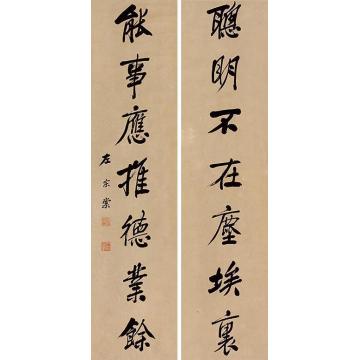 聰明不在塵埃裏
能事應推德業餘
左宗棠